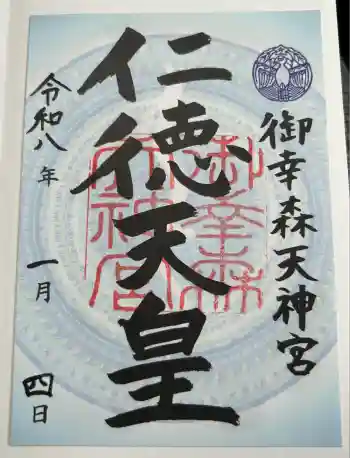 御幸森天神宮
仁徳天皇
令和八年一月四日
御幸森
天神宮